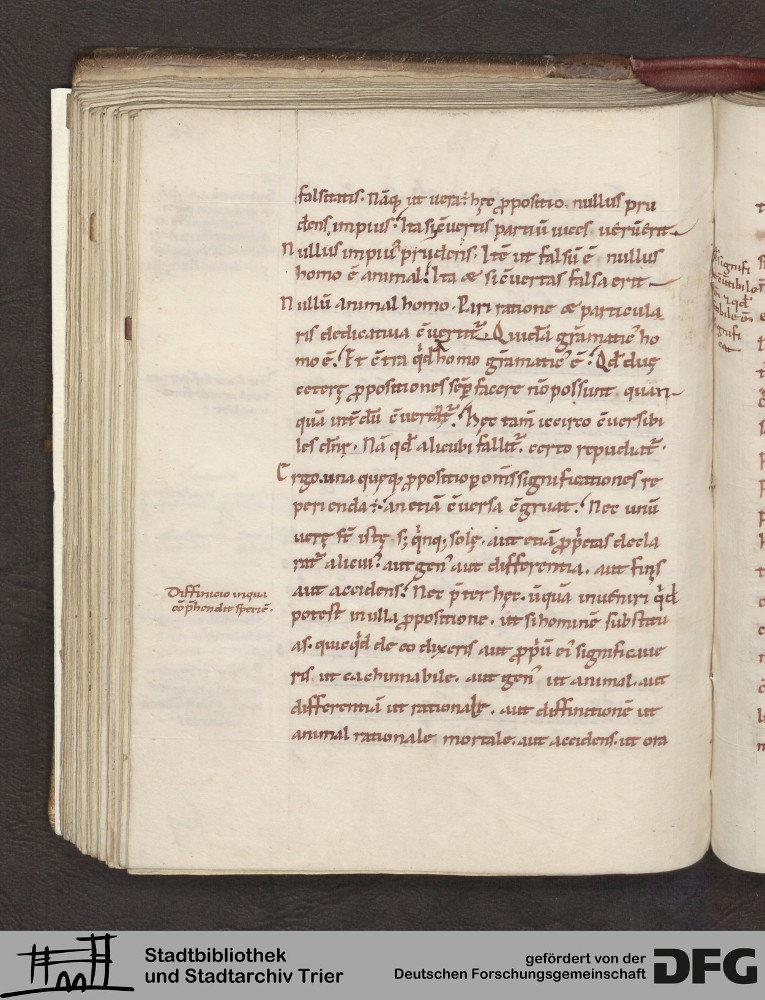 falsitatis. Nāq; ut uera ÷ hęc ꝓpositio. nullus pru
dens impius. Ita si ꝯuertis partiū uices. uerū erit.
Nullus impius prudens. Itē ut falsū ē nullus
homo ē animal. Ita & si ꝯuertas falsa erit
Nullū animal homo. Pari ratione & particula
ris dedicatiua ꝯuertit̄. Quidā grāmatic᾽ ho
mo ē. Et ꝯtra qđā homo grāmatic᾽ ē. Qđ duę
ceterę ꝓpositiones sēp facere nō possunt. quan
quā ꝯuertāt̄. Nec tam̄ iccirco ꝯuersibi
les Nā qđ alicubi fallit̄. certo repudiat̄.
Ergo una quęq; ꝓpositio ꝑ om̄s significationes re
perienda ÷. an etiā ꝯuersa ꝯgruat. Nec
uerę st̄ istę. s; q̇nq; solę. aut etiā ꝓp̄etas decla
rat̄ alicui᾽. aut gen᾽ aut differentia. aut finis
aut accidens. Nec p̄ter hęc. ūquā inueniri q̇d
potest in ulla ꝓpositione. ut si hominē substitu
as. quicq̇d de eo dixeris aut ꝓp̄ū ei᾽ significaue
ris. ut cachinnabile. aut gen᾽ ut animal. aut
differentiā ut rationale. aut diffinitionē ut
animal rationale mortale. aut accidens. ut ora
Diffinicio inqua
cōp̄hendit speciē.
Stadtbibliothek
und Stadtarchiv Trier
gefördert von der
Deutschen Forschungsgemeinschaft
DFG